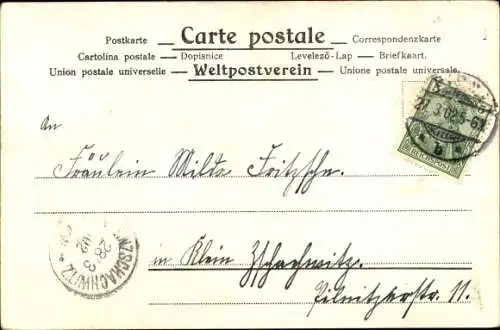 Postkarte — Carte postale — Correspondenzkarte
Cartolina postale — Dopisnice Levelező-Lap — Briefkaart.
Union postale universelle — Weltpostverein — Unione postale universale
An
Fräulein Milda Fritzsche.
in Klein Zschachwitz.
Pilnitzerstr. 11.
28 3
02